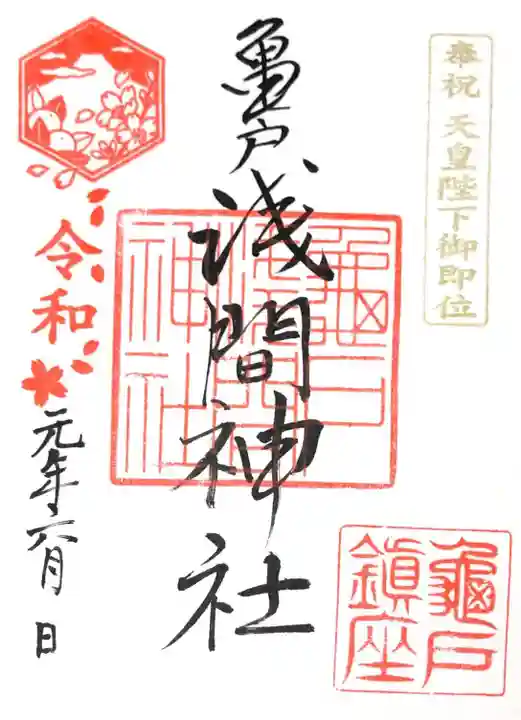 奉祝 天皇陛下御即位
亀戸浅間神社
龜戸浅間神社
龜戸鎮座
令和
元年六月 日